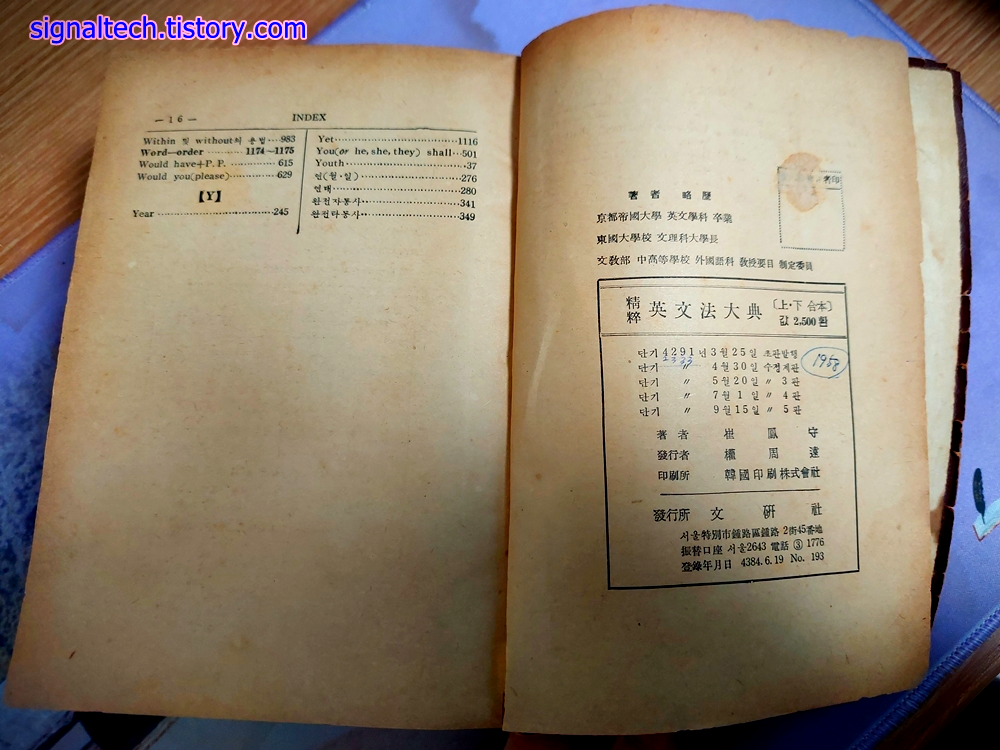 signaltech.tistory.com
— 1 6 —
INDEX
Within 및 without의 용법 ··· 983
Word—order ············ 1174~1175
Would have+P. P. ············· 615
Would you(please) ············ 629
【Y】
Year ···························· 245
Yet ······························ 1116
You(or he, she, they) shall ·· 501
Youth ······························ 37
연(월·일) ························ 276
연태 ······························ 280
완전자동사 ······················ 341
완전타동사 ······················ 349
著者 略歷
京都帝國大學 英文學科 卒業
東國大學校 文理科大學長
文敎部 中高等學校 外國語科 敎授要目 制定委員
精粹 英文法大典 〔上·下 合本〕
값 2,500환
단기 4291년 3월 25일 초판발행
2333
1958
단기 〃 4월 30일 수정재판
단기 〃 5월 20일 〃 3판
단기 〃 7월 1일 〃 4판
단기 〃 9월 15일 〃 5판
著者 崔鳳守
發行者 權周遠
印刷所 韓國印刷株式會社
發行所 文硏社
서울特別市鍾路區鍾路 2街45番地
振替口座 서울2643 電話 ③ 1776
登錄年月日 4384.6.19 No. 193